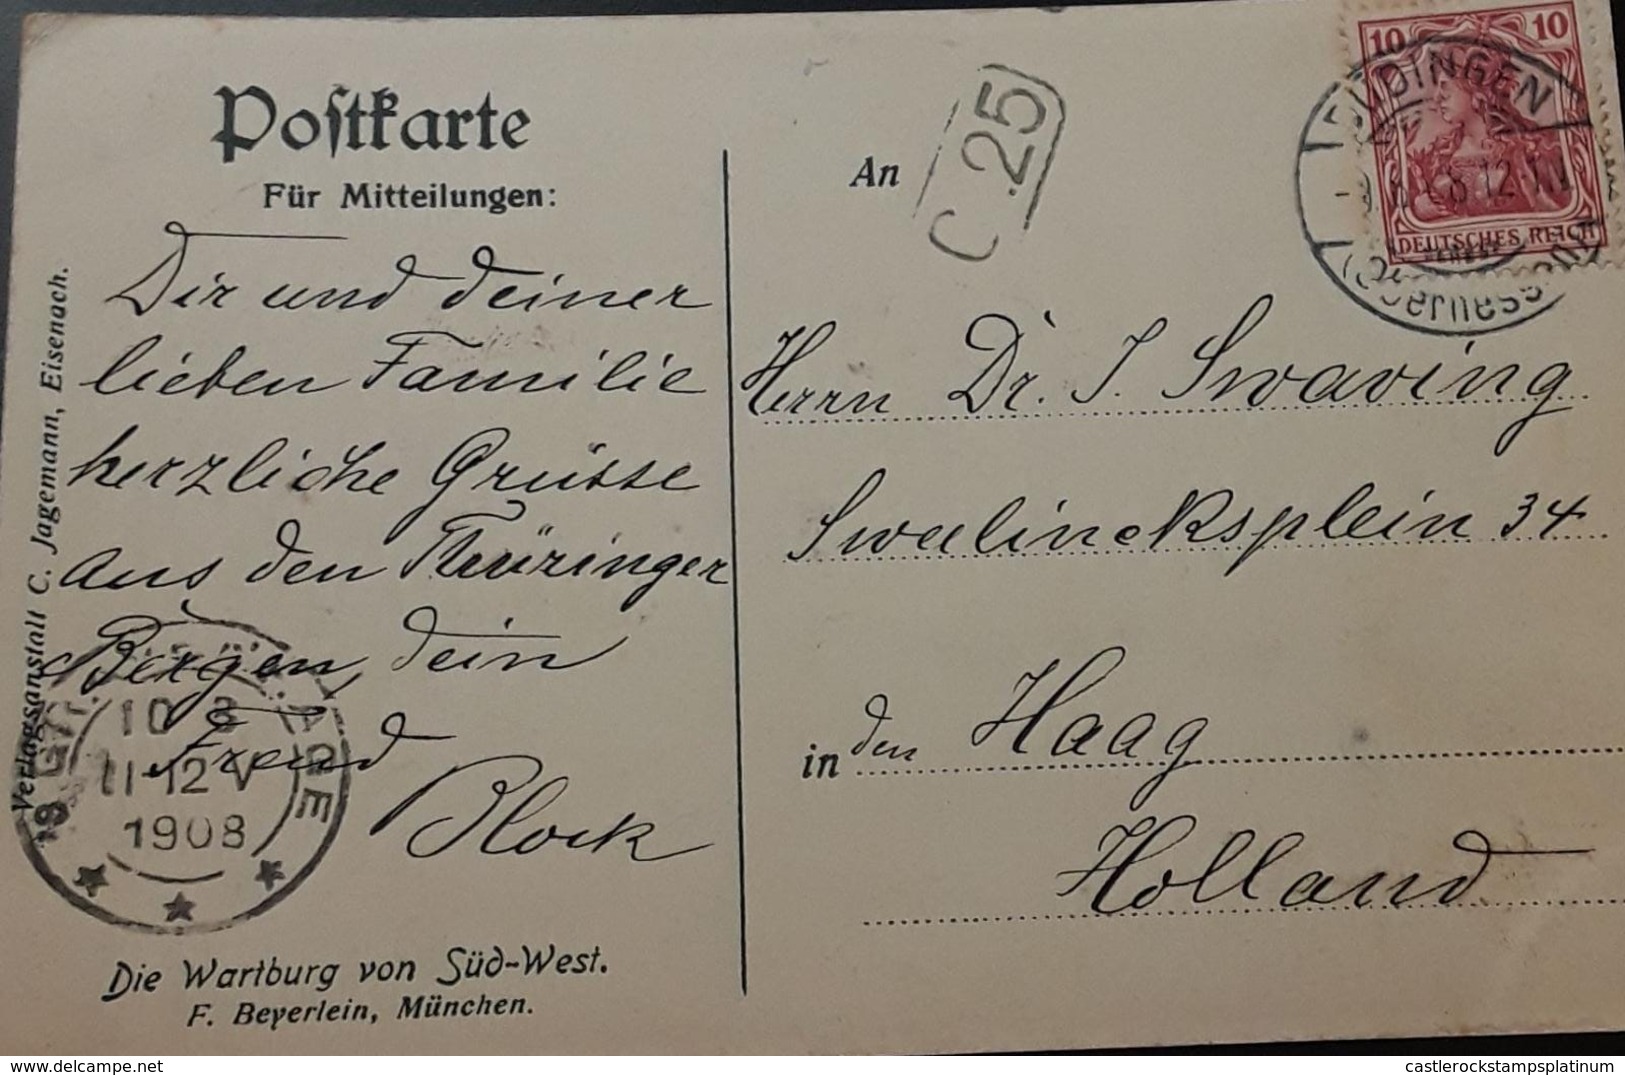 Postkarte
Für Mitteilungen:
Dir und deiner
lieben Familie
herzliche Grüsse
aus den Thüringer
Bergen, dein
Freund
Block
Verlagsanstalt C. Jagemann, Eisenach.
10 8
11-12 V
1908
Die Wartburg von Süd-West.
F. Beyerlein, München.
An
C.25
10 10
DEUTSCHES REICH
Herrn Dr. J. Swaving
Sweelincksplein 34
in den Haag
Holland
castlerockstampsplatinum